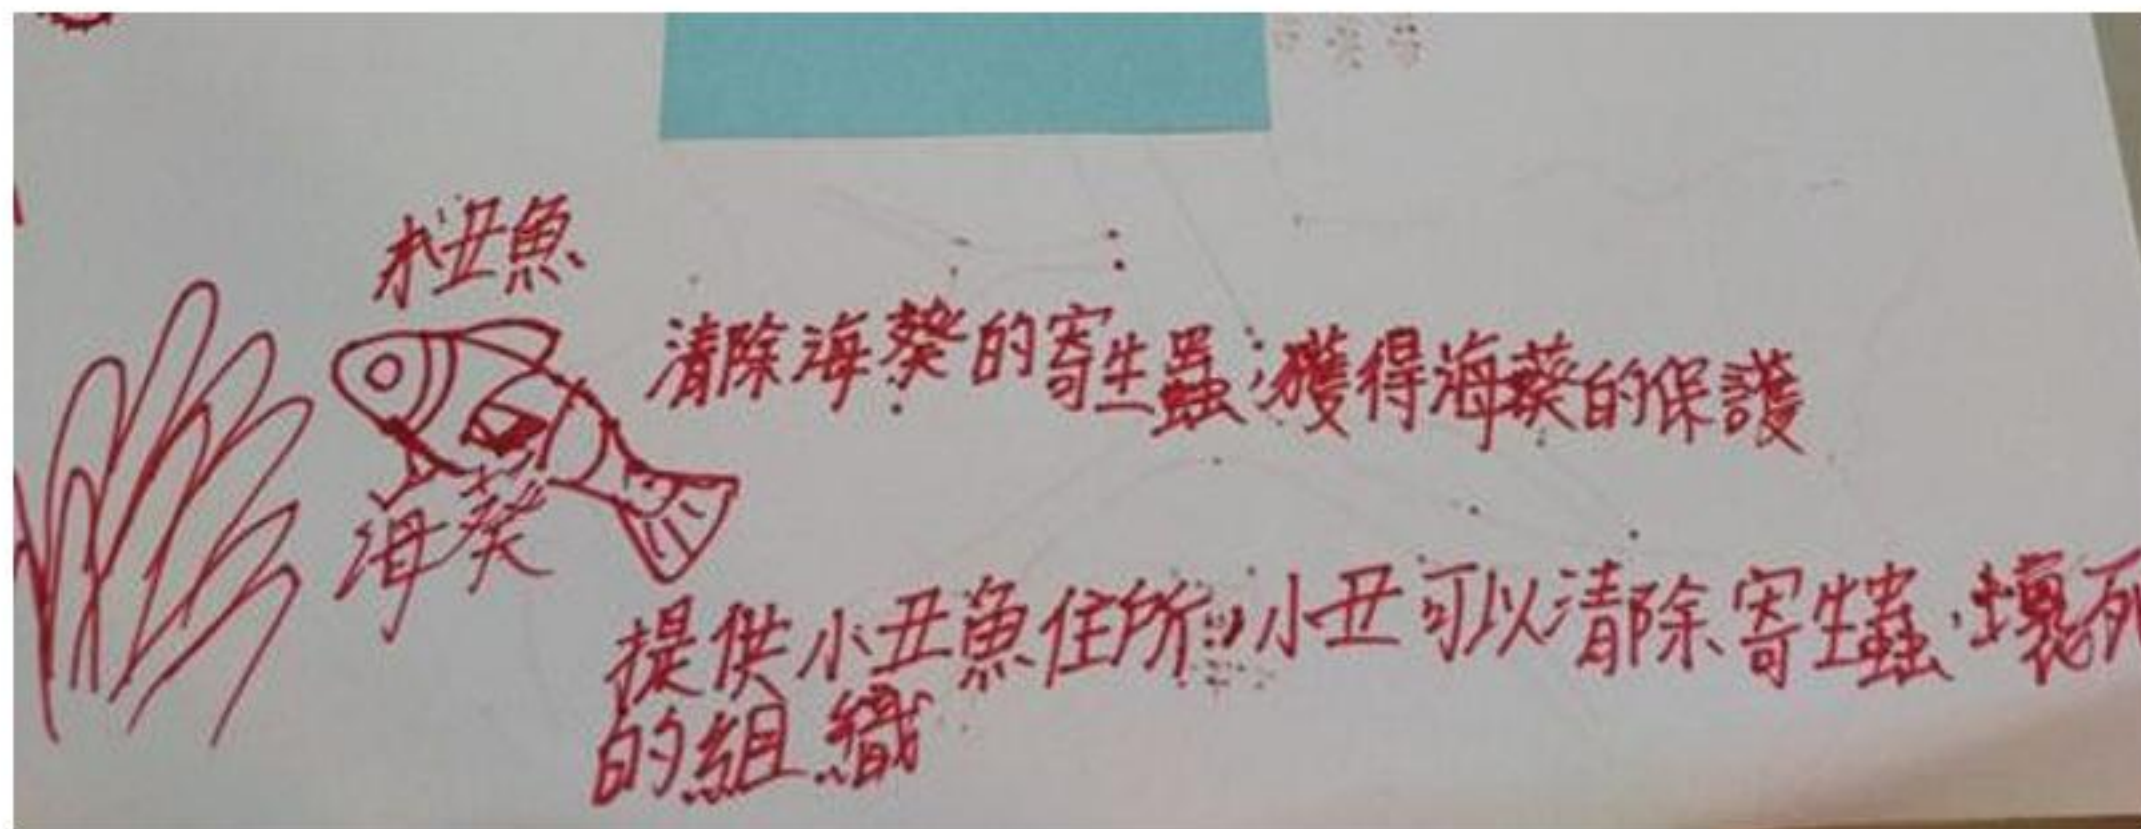 小丑魚
清除海葵的寄生蟲,獲得海葵的保護
海葵
提供小丑魚住所,小丑可以清除寄生蟲,壞死
的組織